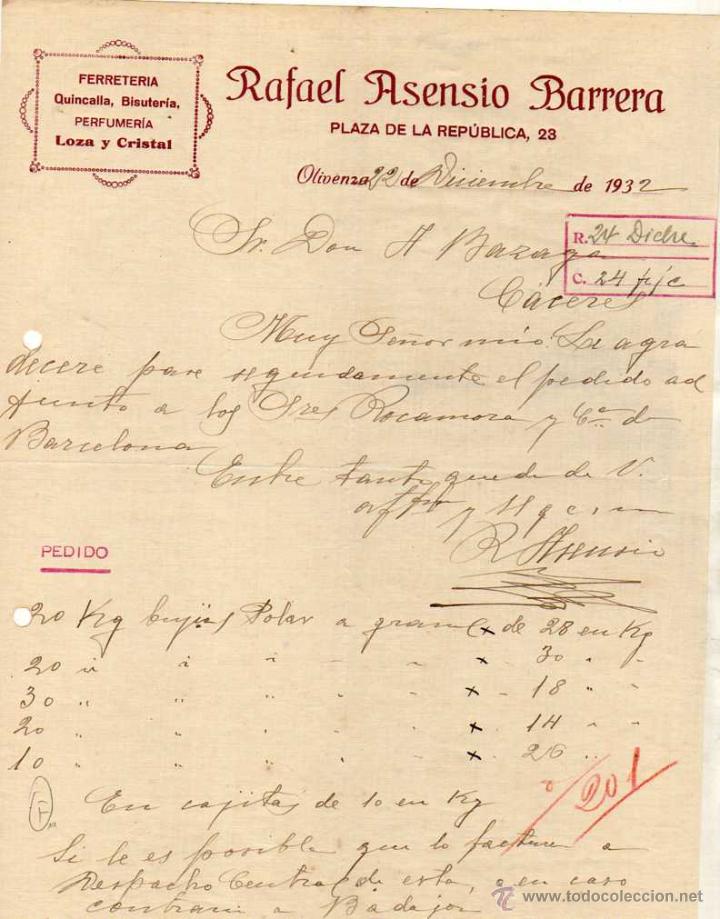 FERRETERIA
Quincalla, Bisutería,
PERFUMERÍA
Loza y Cristal
Rafael Asensio Barrera
PLAZA DE LA REPÚBLICA, 23
Olivenza 22 de Diciembre de 1932
R. 24 Dicbre
C. 24 fjc
Sr. Don A Bazaga
Cáceres
Muy Señor mio. Le agra
decere pase seguidamente el pedido ad
junto a los Sres Rocamora y Cª de
Barcelona
Entre tanto queda de V.
affmo y
R Asensio
PEDIDO
20 Kg bujias Polar a granel x de 28 en Kg
20 " " " - " x " 30 " "
30 " " " " " x - 18 " "
20 " " " " " x - 14 " "
10 " " " " " x - 26 " "
F
En cajitas de 10 en Kg
201
Si le es posible que lo facturen a
Despacho Central de esta, o en caso
contrario a Badajoz
todocoleccion.net